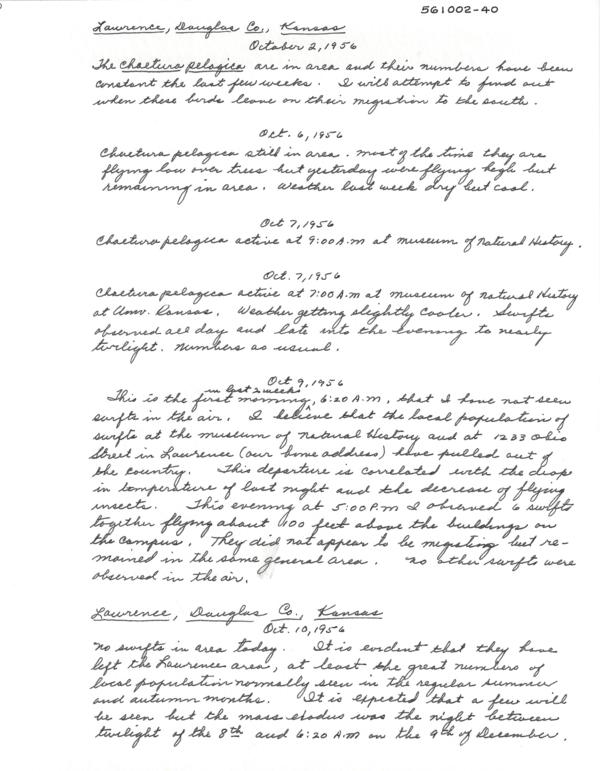 561002-40
Lawrence, Douglas Co., Kansas
October 2, 1956
The Chaetura pelagica are in area and their numbers have been
constant the last few weeks. I will attempt to find out
when these birds leave on their migration to the south.
Oct. 6, 1956
Chaetura pelagica still in area. most of the time they are
flying low over trees but yesterday were flying high but
remaining in area. Weather last week dry but cool.
Oct 7, 1956
Chaetura pelagica active at 9:00 A.m at museum of Natural History.
Oct. 7, 1956
Chaetura pelagica active at 7:00 A.m at museum of natural History
at Univ. Kansas. Weather getting slightly cooler. Swifts
observed all day and late into the evening to nearly
twilight. numbers as usual.
Oct 9, 1956
in last 2 weeks
This is the first morning, 6:20 A.m, that I have not seen
swifts in the air. I believe that the local population of
swifts at the museum of natural History and at 1233 Ohio
Street in Lawrence (our home address) have pulled out of
the country. This departure is correlated with the drop
in temperature of last night and the decrease of flying
insects. This evening at 5:00 P.m I observed 6 swifts
together flying about 100 feet above the buildings on
the campus. They did not appear to be migrating but re-
mained in the same general area. no other swifts were
observed in the air.
Lawrence, Douglas Co., Kansas
Oct. 10, 1956
no swifts in area today. It is evident that they have
left the Lawrence area, at least the great numbers of
local population normally seen in the regular summer
and autumn months. It is expected that a few will
be seen but the mass exodus was the night between
twilight of the 8th and 6:20 A.m on the 9th of December.